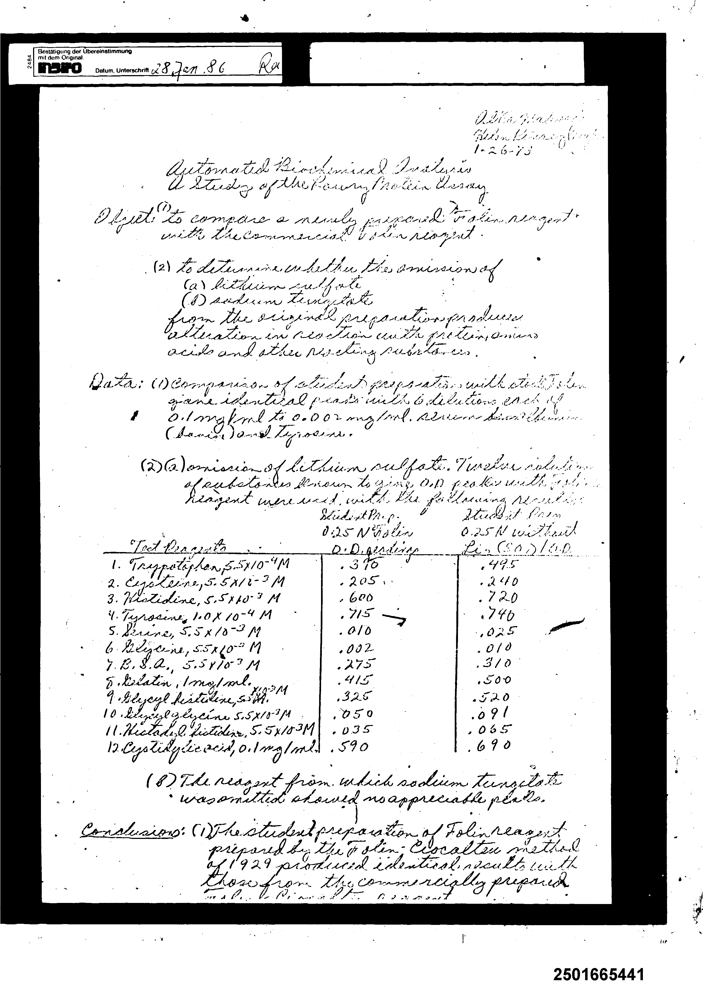 2484
Bestätigung der Übereinstimmung
mit dem Original
INBIFO
Datum, Unterschrift 28. Jan. 86
1-26-73
Automated Biochemical Analysis
A Study of the Lowry Protein Assay
Object: (1) to compare a newly prepared Folin reagent
with the commercial Folin reagent.
(2) to determine whether the omission of
(a) lithium sulfate
(b) sodium tungstate
from the original preparation produces
alteration in reaction with protein, amino
acids and other reacting substances.
Data: (1) Comparison of student preparation with stock Folin
gave identical peaks with 6 dilutions each of
0.1 mg/ml to 0.002 mg/ml. serum
and Tyrosine.
(2) (a) omission of lithium sulfate. Twelve solutions
of substances known to give O.D. peaks with Folin
reagent were used, with the following results:
Student Prep. Student Prep.
0.25 N Folin 0.25 N without
Test Reagents O.D. readings Li2(SO4) / O.D.
1. Tryptophan, 5.5x10-4M .390 .495
2. Cysteine, 5.5x10-3 M .205 .240
3. Histidine, 5.5x10-3 M .600 .720
4. Tyrosine, 1.0 x 10-4 M .715 .740
5. Serine, 5.5x10-3 M .010 .025
6. Glycine, 5.5x10-3 M .002 .010
7. B.S.A., 5.5x10-3 M .275 .310
8. Gelatin, 1mg/ml. .415 .500
9. Glycyl histidine, 5.5x10-3M .325 .520
10. Glycylglycine 5.5x10-3M .050 .091
11. Histadyl histidine, 5.5x10-3M .035 .065
12. Cystidylic acid, 0.1mg/ml. .590 .690
(b) The reagent from which sodium tungstate
was omitted showed no appreciable peaks.
Conclusions: (1) The student preparation of Folin reagent
prepared by the Folin-Ciocalteu method
of 1929 produced identical results with
those from the commercially prepared
reagent
2501665441